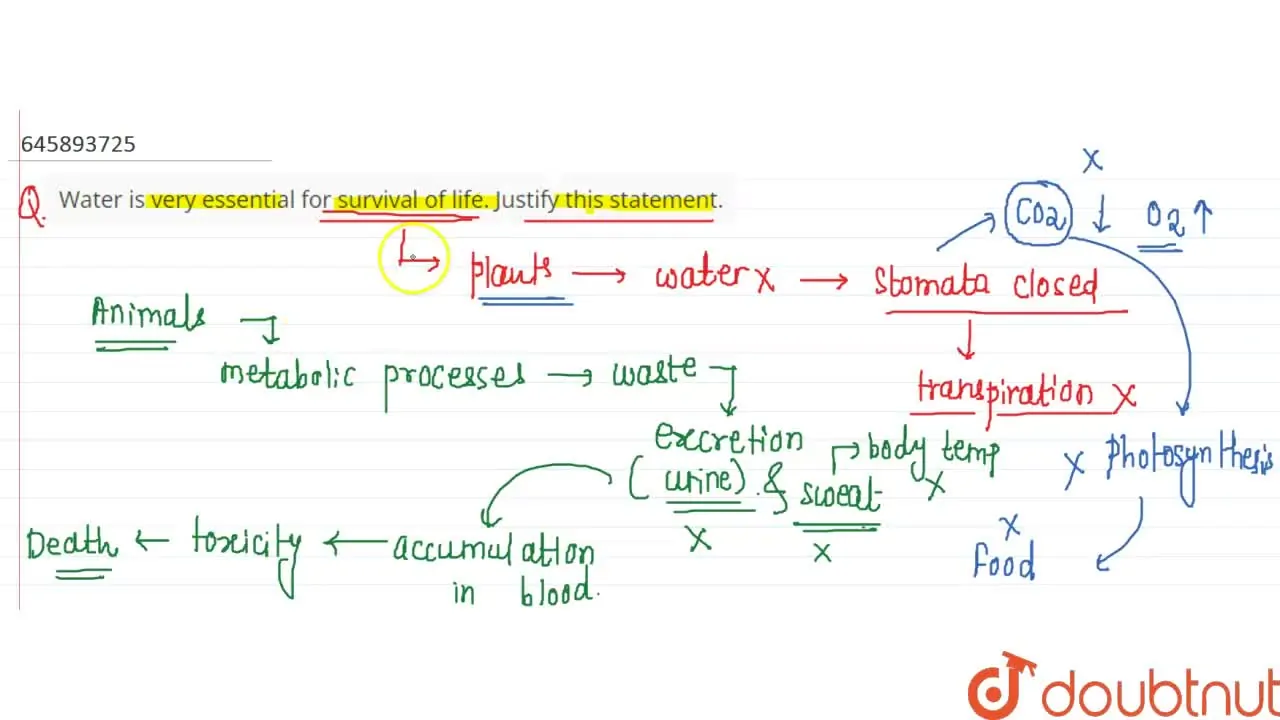 645893725
Q. Water is very essential for survival of life. Justify this statement.
X
CO2 ↓ O2 ↑
plants → water x → Stomata closed
Animals
metabolic processes → waste
transpiration X
excretion
(urine) & sweat
body temp
X
X
X
X Photosynthesis
X
Food
Death ← toxicity ← accumulation
in blood.
doubtnut